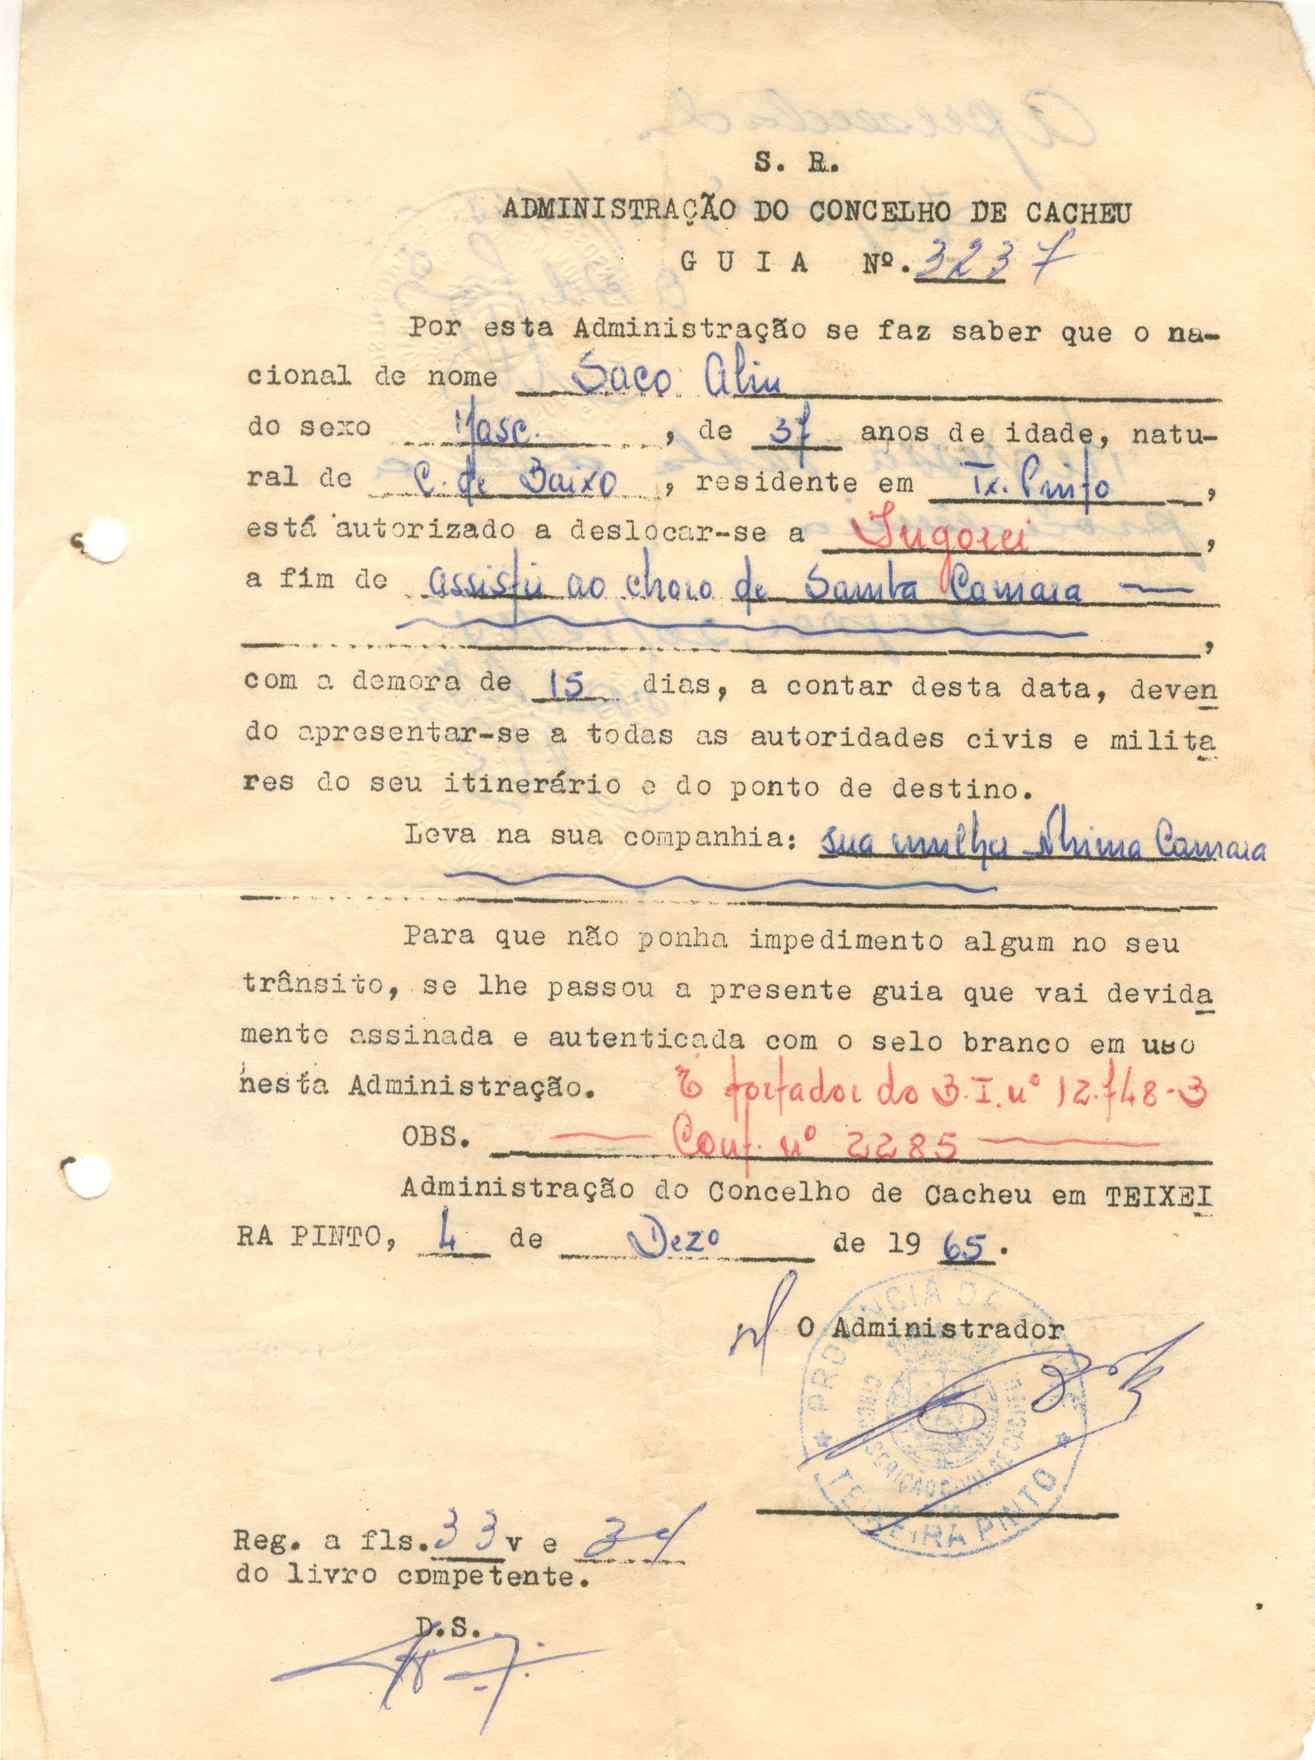 S. R.
ADMINISTRAÇÃO DO CONCELHO DE CACHEU
G U I A Nº. 3237
Por esta Administração se faz saber que o na-
cional de nome Saco Aliu
do sexo Masc. , de 37 anos de idade, natu-
ral de C. de Baixo , residente em Tx. Pinto ,
está autorizado a deslocar-se a Ingorei ,
a fim de assistir ao choro de Samba Camara —
,
com a demora de 15 dias, a contar desta data, deven
do apresentar-se a todas as autoridades civis e milita
res do seu itinerário e do ponto de destino.
Leva na sua companhia: sua mulher Nhima Camara
Para que não ponha impedimento algum no seu
trânsito, se lhe passou a presente guia que vai devida
mente assinada e autenticada com o selo branco em uso
nesta Administração. É portador do B.I. nº 12.748-B
OBS. — Conf. nº 2285 —
Administração do Concelho de Cacheu em TEIXEI
RA PINTO, 4 de Dezº de 19 65.
O Administrador
PROVÍNCIA DA
TEIXEIRA PINTO
Reg. a fls. 33 v e 34
do livro competente.
D.S.